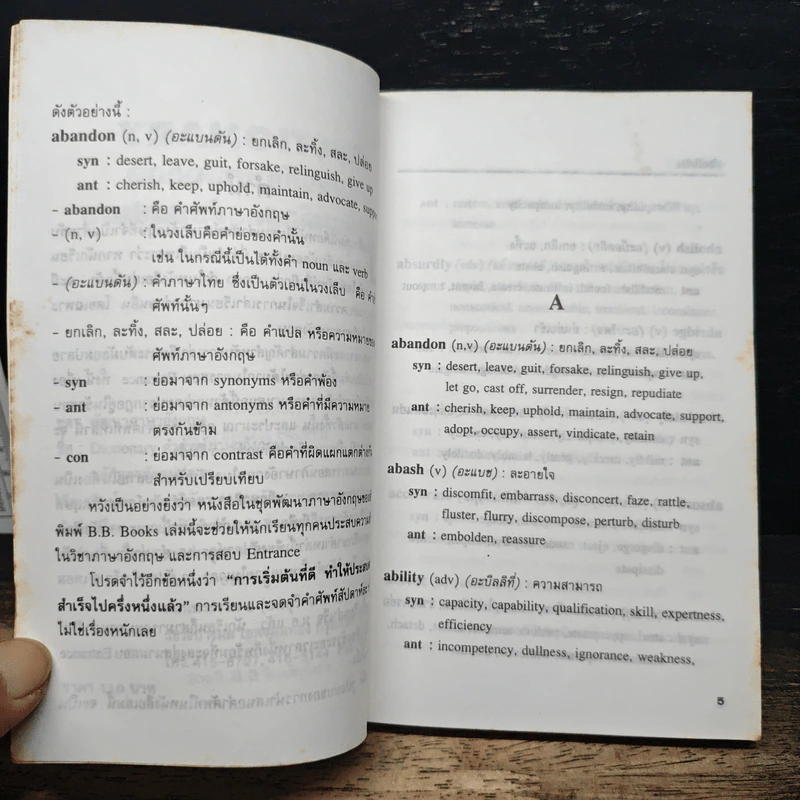 ดังตัวอย่างนี้ :
abandon (n, v) (อะแบนดัน) : ยกเลิก, ละทิ้ง, สละ, ปล่อย
syn : desert, leave, guit, forsake, relinguish, give up
ant : cherish, keep, uphold, maintain, advocate, suppo
- abandon : คือ คำศัพท์ภาษาอังกฤษ
- (n, v) : ในวงเล็บคือคำย่อของคำนั้น
เช่น ในกรณีนี้เป็นได้ทั้งคำ noun และ verb
- (อะแบนดัน) : คำภาษาไทย ซึ่งเป็นตัวเอนในวงเล็บ คือ คำ
ศัพท์นั้นๆ
- ยกเลิก, ละทิ้ง, สละ, ปล่อย : คือ คำแปล หรือความหมายของ
ศัพท์ภาษาอังกฤษ
- syn : ย่อมาจาก synonyms หรือคำพ้อง
- ant : ย่อมาจาก antonyms หรือคำที่มีความหมาย
ตรงกันข้าม
- con : ย่อมาจาก contrast คือคำที่ผิดแผกแตกต่าง
สำหรับเปรียบเทียบ
หวังเป็นอย่างยิ่งว่า หนังสือในชุดพัฒนาภาษาอังกฤษของ
พิมพ์ B.B. Books เล่มนี้จะช่วยให้นักเรียนทุกคนประสบความ
ในวิชาภาษาอังกฤษ และการสอบ Entrance
โปรดจำไว้อีกข้อหนึ่งว่า "การเริ่มต้นที่ดี ทำให้ประสบ
สำเร็จไปครึ่งหนึ่งแล้ว" การเรียนและจดจำคำศัพท์สัปดาห์ละ
ไม่ใช่เรื่องหนักเลย
A
abandon (n,v) (อะแบนดัน) : ยกเลิก, ละทิ้ง, สละ, ปล่อย
syn : desert, leave, guit, forsake, relinguish, give up,
let go, cast off, surrender, resign, repudiate
ant : cherish, keep, uphold, maintain, advocate, support,
adopt, occupy, assert, vindicate, retain
abash (v) (อะแบช) : ละอายใจ
syn : discomfit, embarrass, disconcert, faze, rattle,
fluster, flurry, discompose, perturb, disturb
ant : embolden, reassure
ability (adv) (อะบิลลิที่) : ความสามารถ
syn : capacity, capability, qualification, skill, expertness,
efficiency
ant : incompetency, dullness, ignorance, weakness,
5